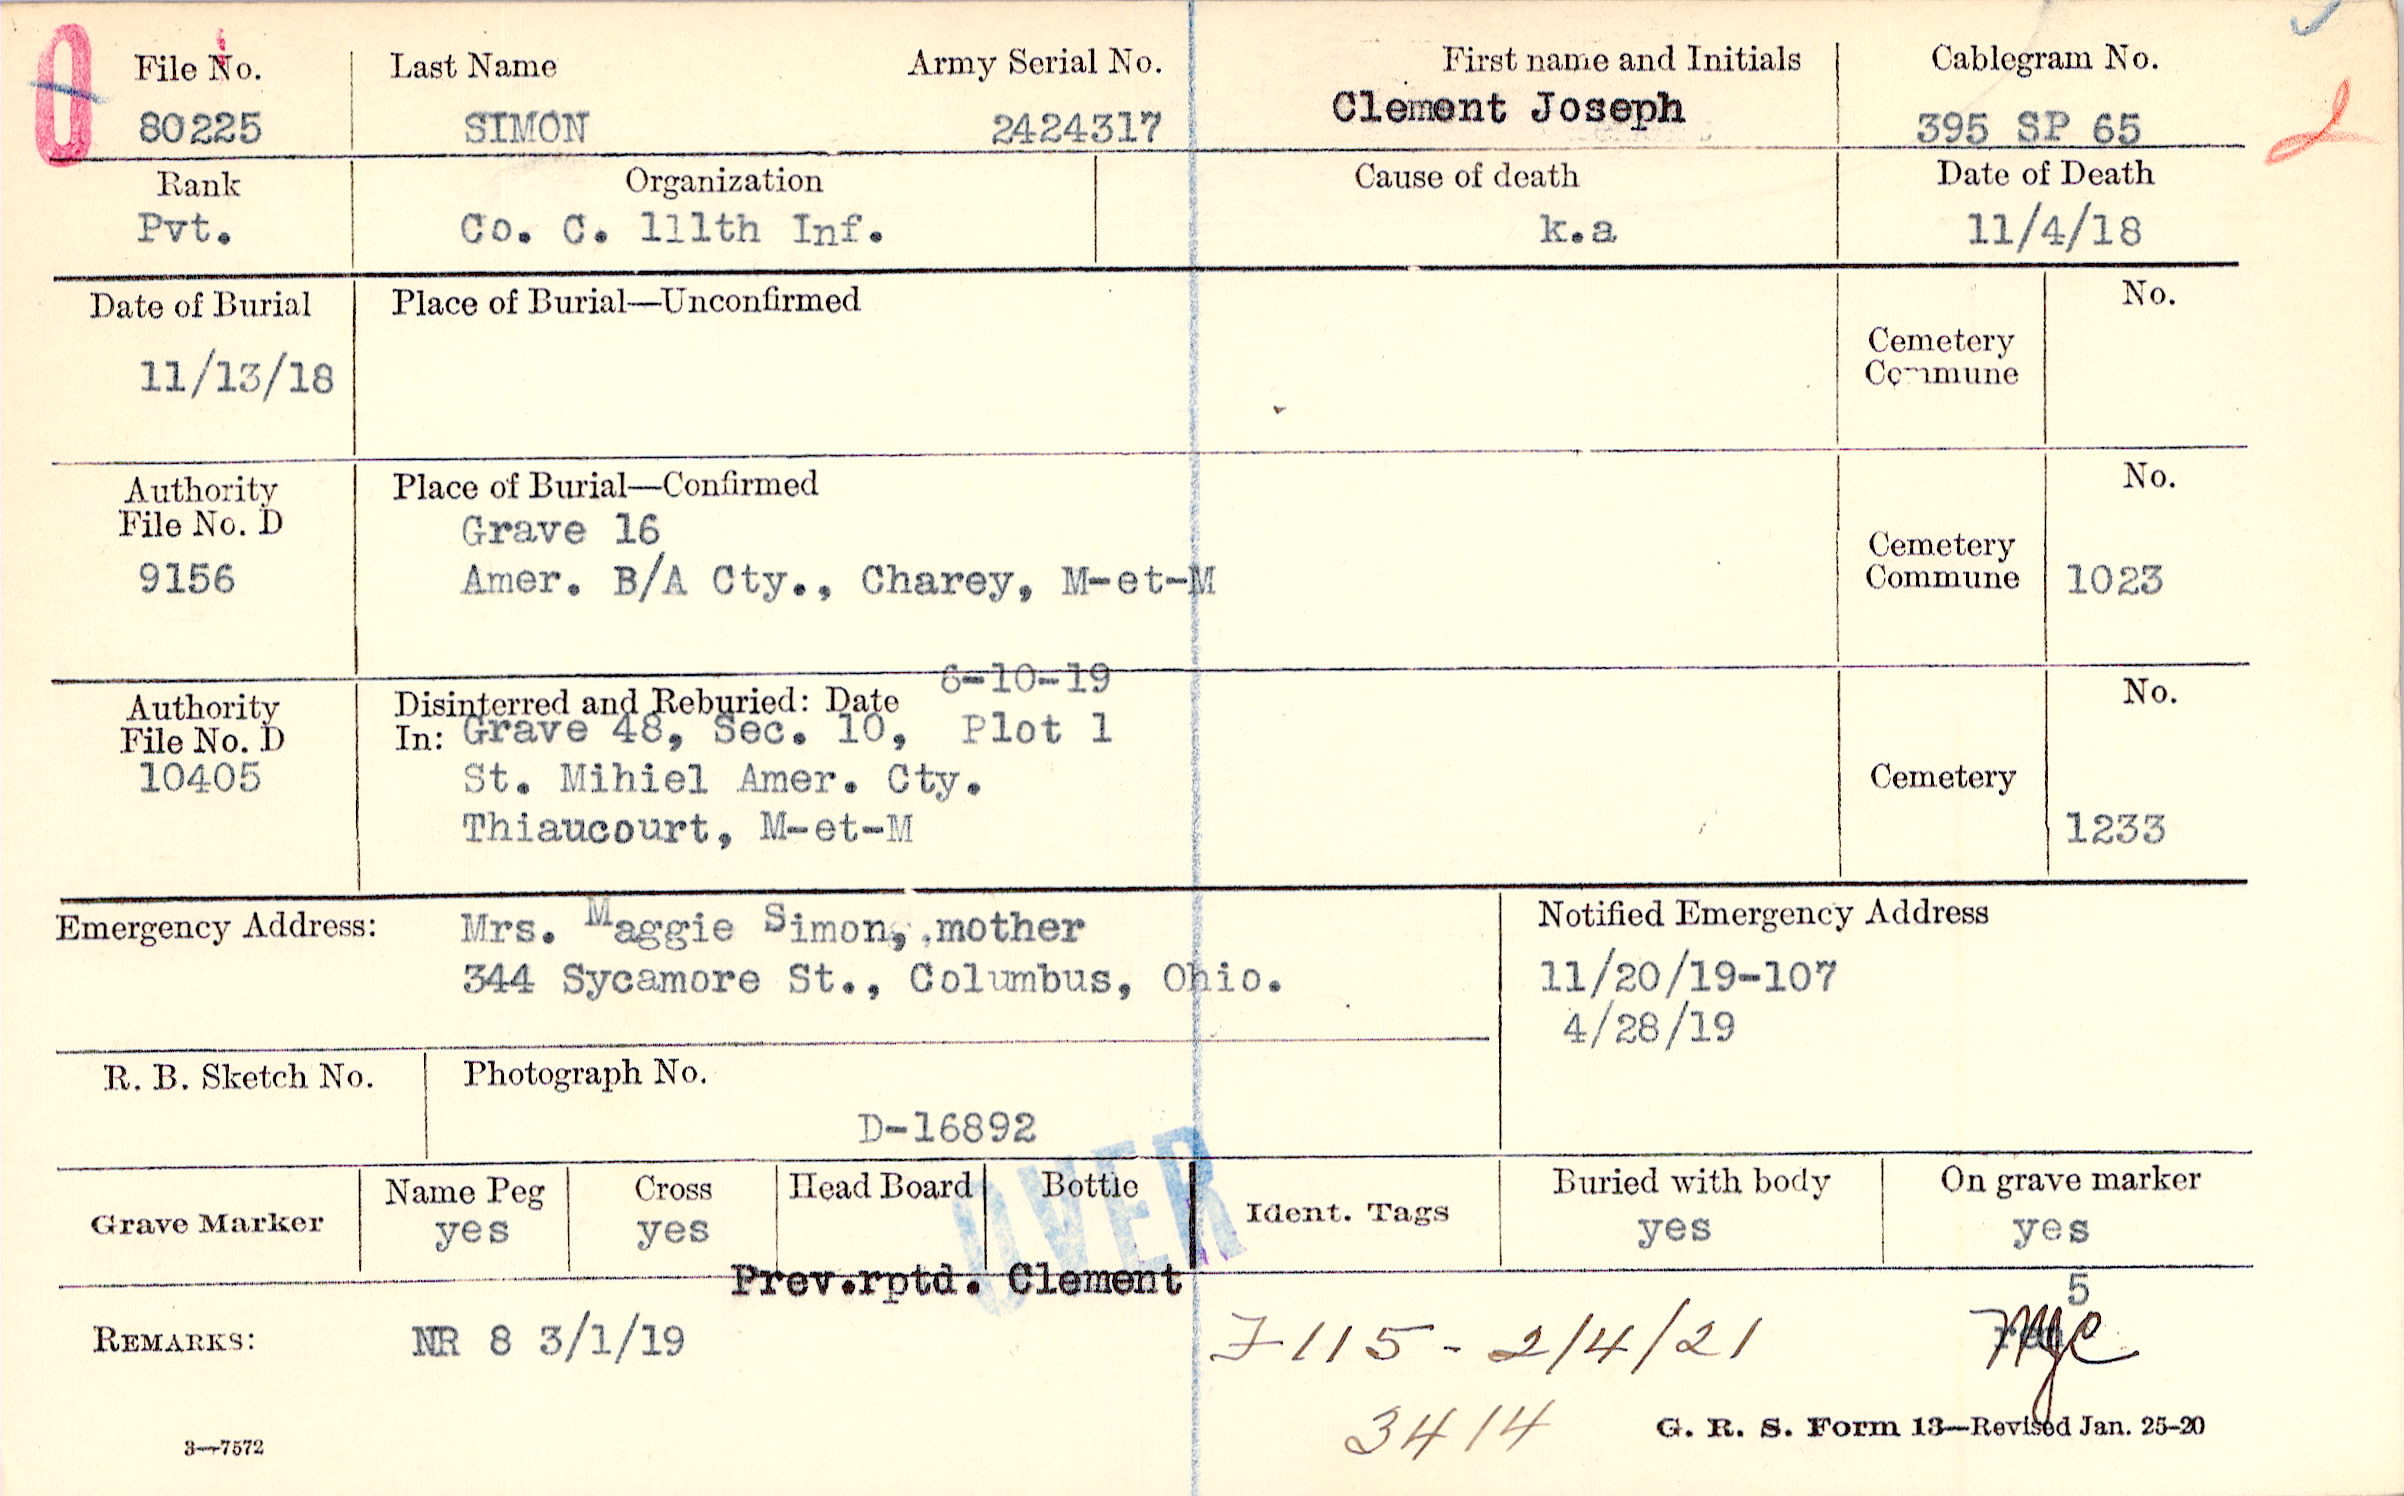 0
File No. Last Name Army Serial No. First name and Initials Cablegram No.
80225 SIMON 2424317 Clement Joseph 395 SP 65
2
Rank Organization Cause of death Date of Death
Pvt. Co. C. 111th Inf. k.a 11/4/18
Date of Burial Place of Burial—Unconfirmed No.
11/13/18 Cemetery
Commune
Authority Place of Burial—Confirmed No.
File No. D Grave 16 Cemetery
9156 Amer. B/A Cty., Charey, M-et-M Commune 1023
6-10-19
Authority Disinterred and Reburied: Date No.
File No. D In: Grave 48, Sec. 10, Plot 1
10405 St. Mihiel Amer. Cty. Cemetery
Thiaucourt, M-et-M 1233
Emergency Address: Mrs. Maggie Simon, mother Notified Emergency Address
344 Sycamore St., Columbus, Ohio. 11/20/19-107
4/28/19
R. B. Sketch No. Photograph No.
D-16892
OVER
Name Peg Cross Head Board Bottle Buried with body On grave marker
Grave Marker yes yes Ident. Tags yes yes
Prev.rptd. Clement 5
REMARKS: NR 8 3/1/19 7115 - 2/4/21
3414
3—7572 G. R. S. Form 13—Revised Jan. 25-20